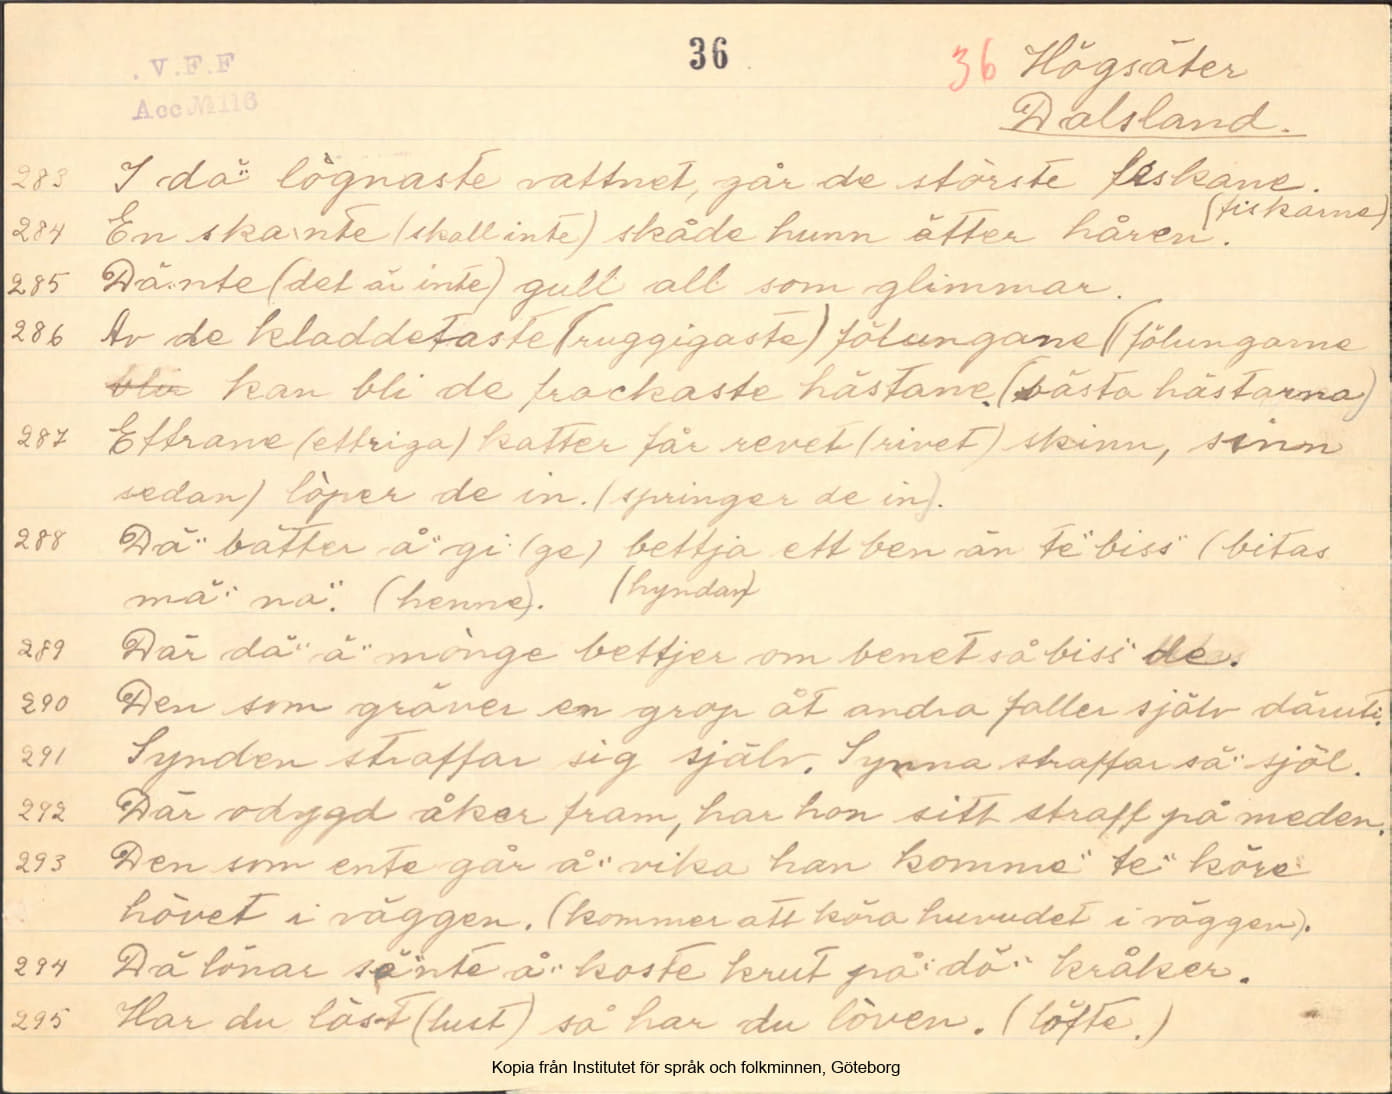 V.F.F
Acc. № 116
36
36 Högsäter
Dalsland.
283 I dä" lögnaste vattnet, går de störste feskane.
(fiskarne)
284 En ska'nte (skall inte) skåde hunn ätter håren.
285 Dä'nte (det är inte) gull all som glimmar.
286 Av de kladdetaste (ruggigaste) fölungane (fölungarne
kan bli de frackaste hästane. (bästa hästarna)
287 Ettrane (ettriga) katter får revet (rivet) skinn, sinn
sedan) löper de in. (springer de in).
288 Dä" bätter å" gi (ge) bettja ett ben än te" biss" (bitas
(hyndan)
mä" na". (henne).
289 Där dä" ä" mönge bettjer om benet så biss" de.
290 Den som gräver en grop åt andra faller själv däruti.
291 Synden straffar sig själv. Synna straffar sä" sjöl.
292 Där odygd åker fram, har hon sitt straff på meden.
293 Den som ente går å" vika han komme" te" köre
hövet i väggen. (kommer att köra huvudet i väggen).
294 Dä lönar sä"nte å" koste krut på" dö" kråker.
295 Har du löst (lust) så har du löven. (löfte.)
Kopia från Institutet för språk och folkminnen, Göteborg